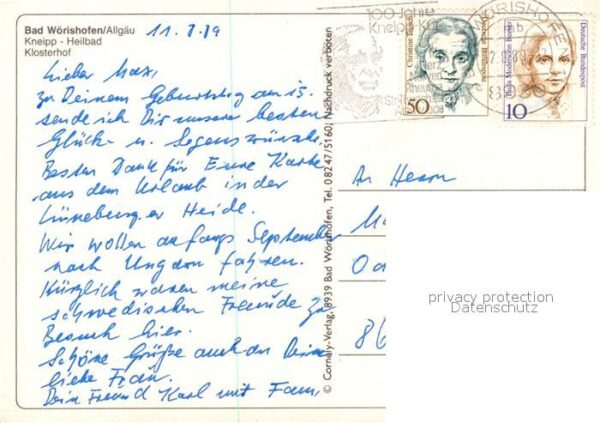 Bad Wörishofen/Allgäu
Kneipp - Heilbad
Klosterhof
11. 8. 89
Lieber Max,
zu Deinem Geburtstag am 15.
sende ich Dir unsere besten
Glück- u. Segenswünsche.
Besten Dank für Eure Karte
aus dem Urlaub in der
Lüneburger Heide.
Wir wollen anfangs September
nach Ungarn fahren.
Kürzlich waren meine
schwedischen Freunde zu
Besuch hier.
Schöne Grüße auch an Deine
liebe Frau.
Dein Freund Karl mit Fam.
© Cornely-Verlag, 8939 Bad Wörishofen, Tel. 0 82 47/51 60, Nachdruck verboten
100 Jahre
Kneipp
WÖRISHOFEN
Deutsche Bundespost
50
Deutsche Bundespost
Paula Modersohn-Becker
10
An Herrn
privacy protection
Datenschutz